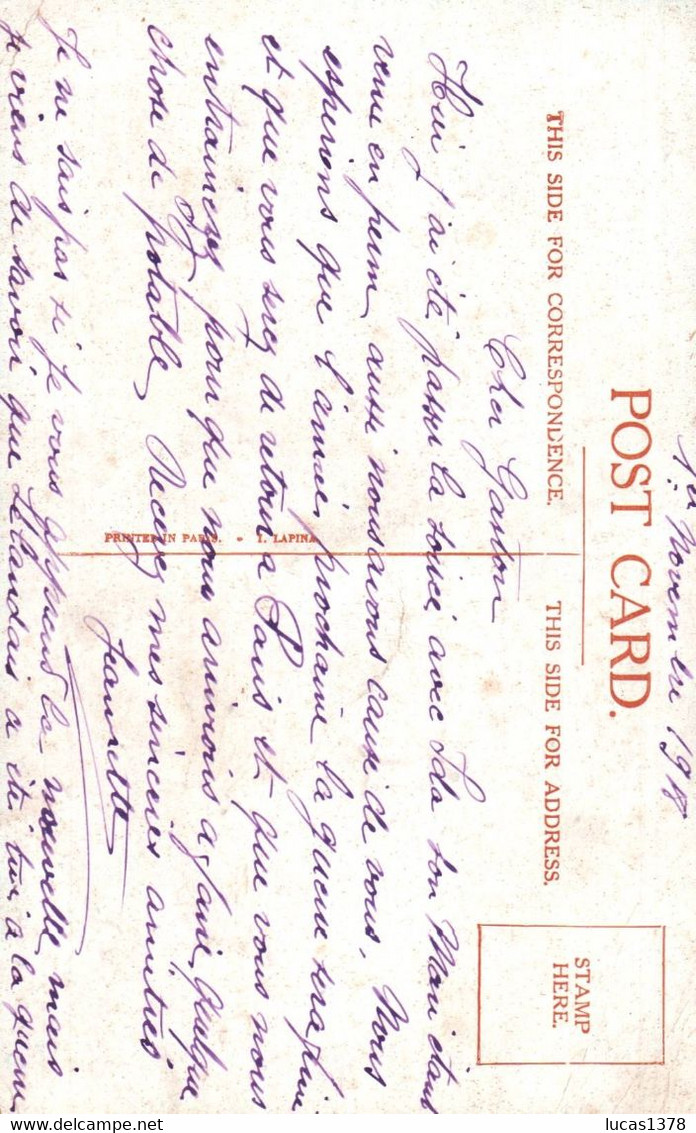 1er Novembre 1918
POST CARD.
THIS SIDE FOR CORRESPONDENCE.
THIS SIDE FOR ADDRESS.
STAMP
HERE.
PRINTED IN PARIS. - I. LAPINA
Cher Gaston
Hier j'ai été passé la soirée avec Ida son Mari étant
venu en perm, aussi nous avons causé de vous, Nous
esperions que l'année prochaine la guerre sera fini
et que vous serez de retour a Paris et que vous nous
entrainerez pour que nous arrivions a faire quelque
chose de potable, Recevez mes sincères amitiés
Jeannette
Je ne sais pas si je vous apprend la nouvelle, mais
je viens de savoir que Lelandais a été tué a la guerre
lucas1378